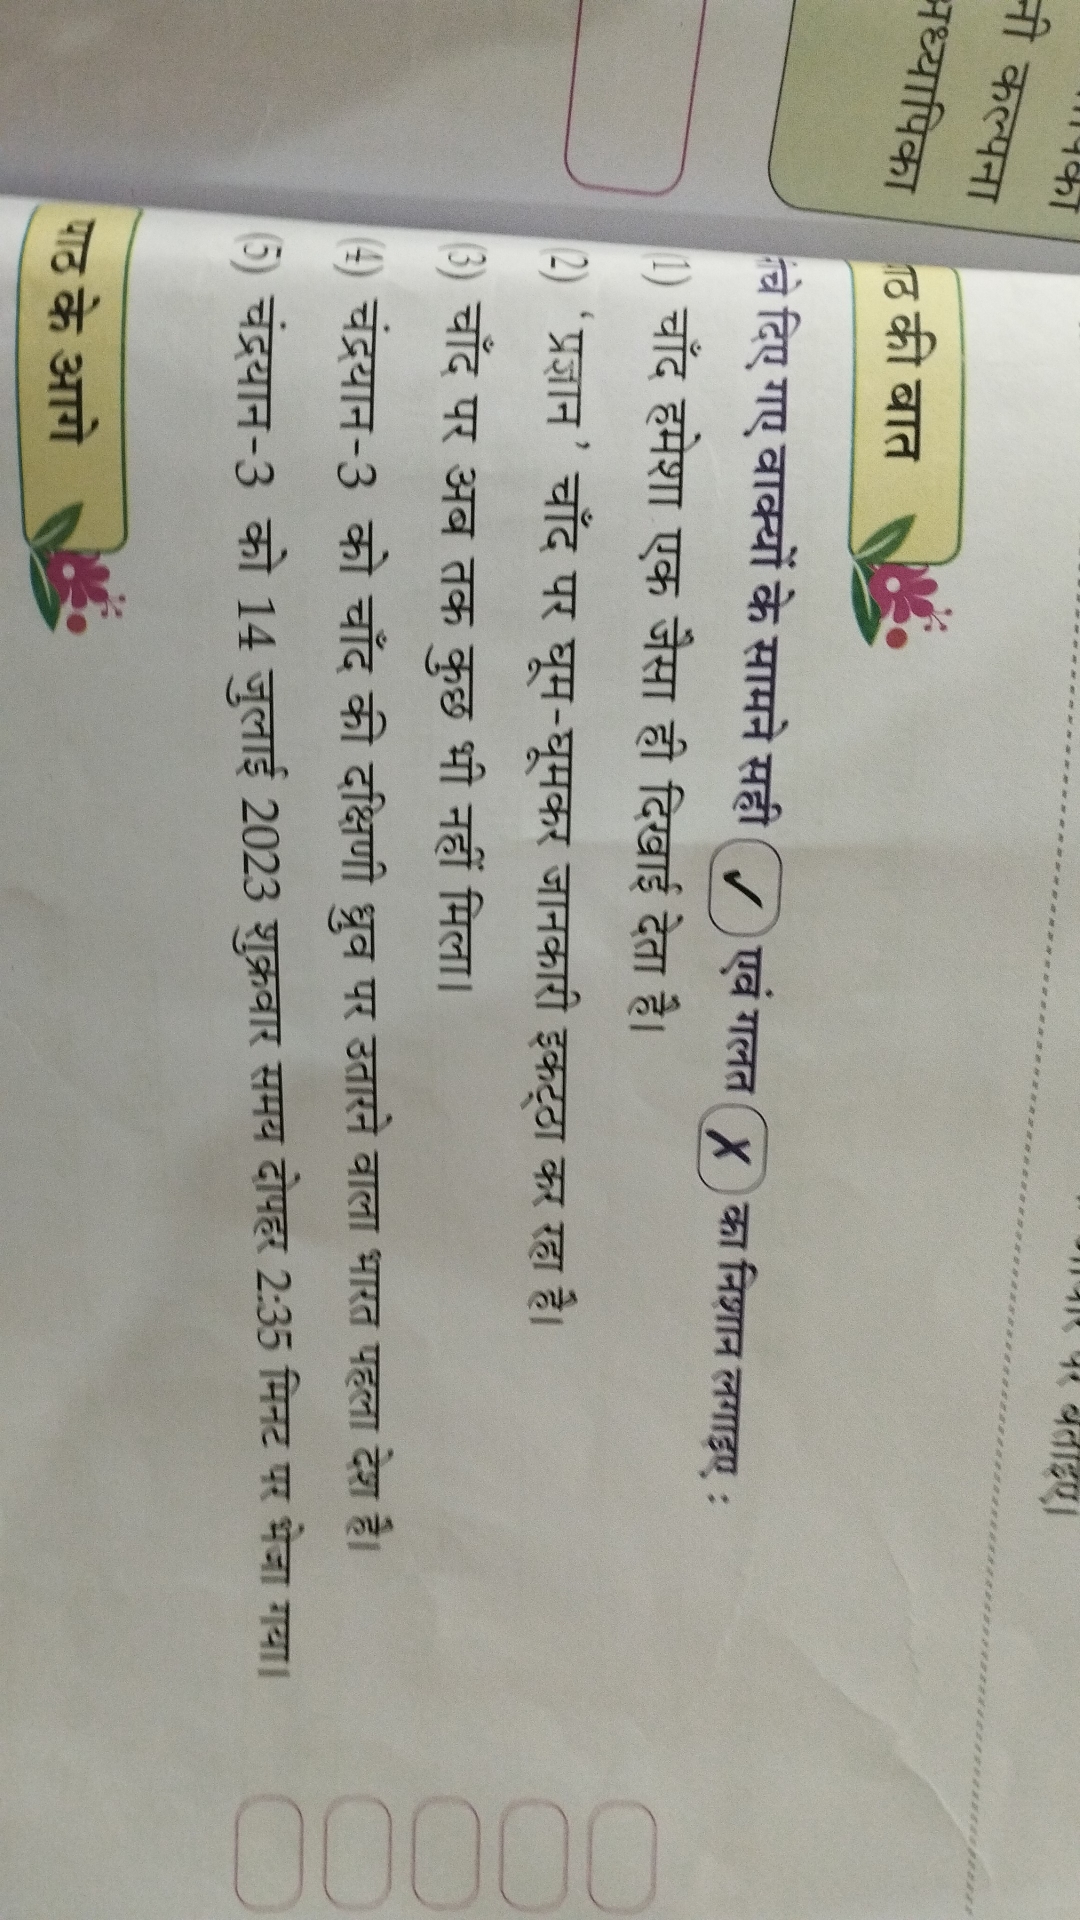 नी कल्पना
पाठ की बात
नीचे दिए गए वाक्यों के सामने सही ✓ एवं गलत ✗ का निशान लगाइए :
(1) चाँद हमेशा एक जैसा ही दिखाई देता है।
(2) ‘प्रज्ञान’ चाँद पर घूम-घूमकर जानकारी इकट्ठा कर रहा है।
(3) चाँद पर अब तक कुछ भी नहीं मिला।
(4) चंद्रयान-3 को चाँद की दक्षिणी ध्रुव पर उतारने वाला भारत पहला देश है।
(5) चंद्रयान-3 को 14 जुलाई 2023 शुक्रवार समय दोपहर 2:35 मिनट पर भेजा गया।
पाठ के आगे